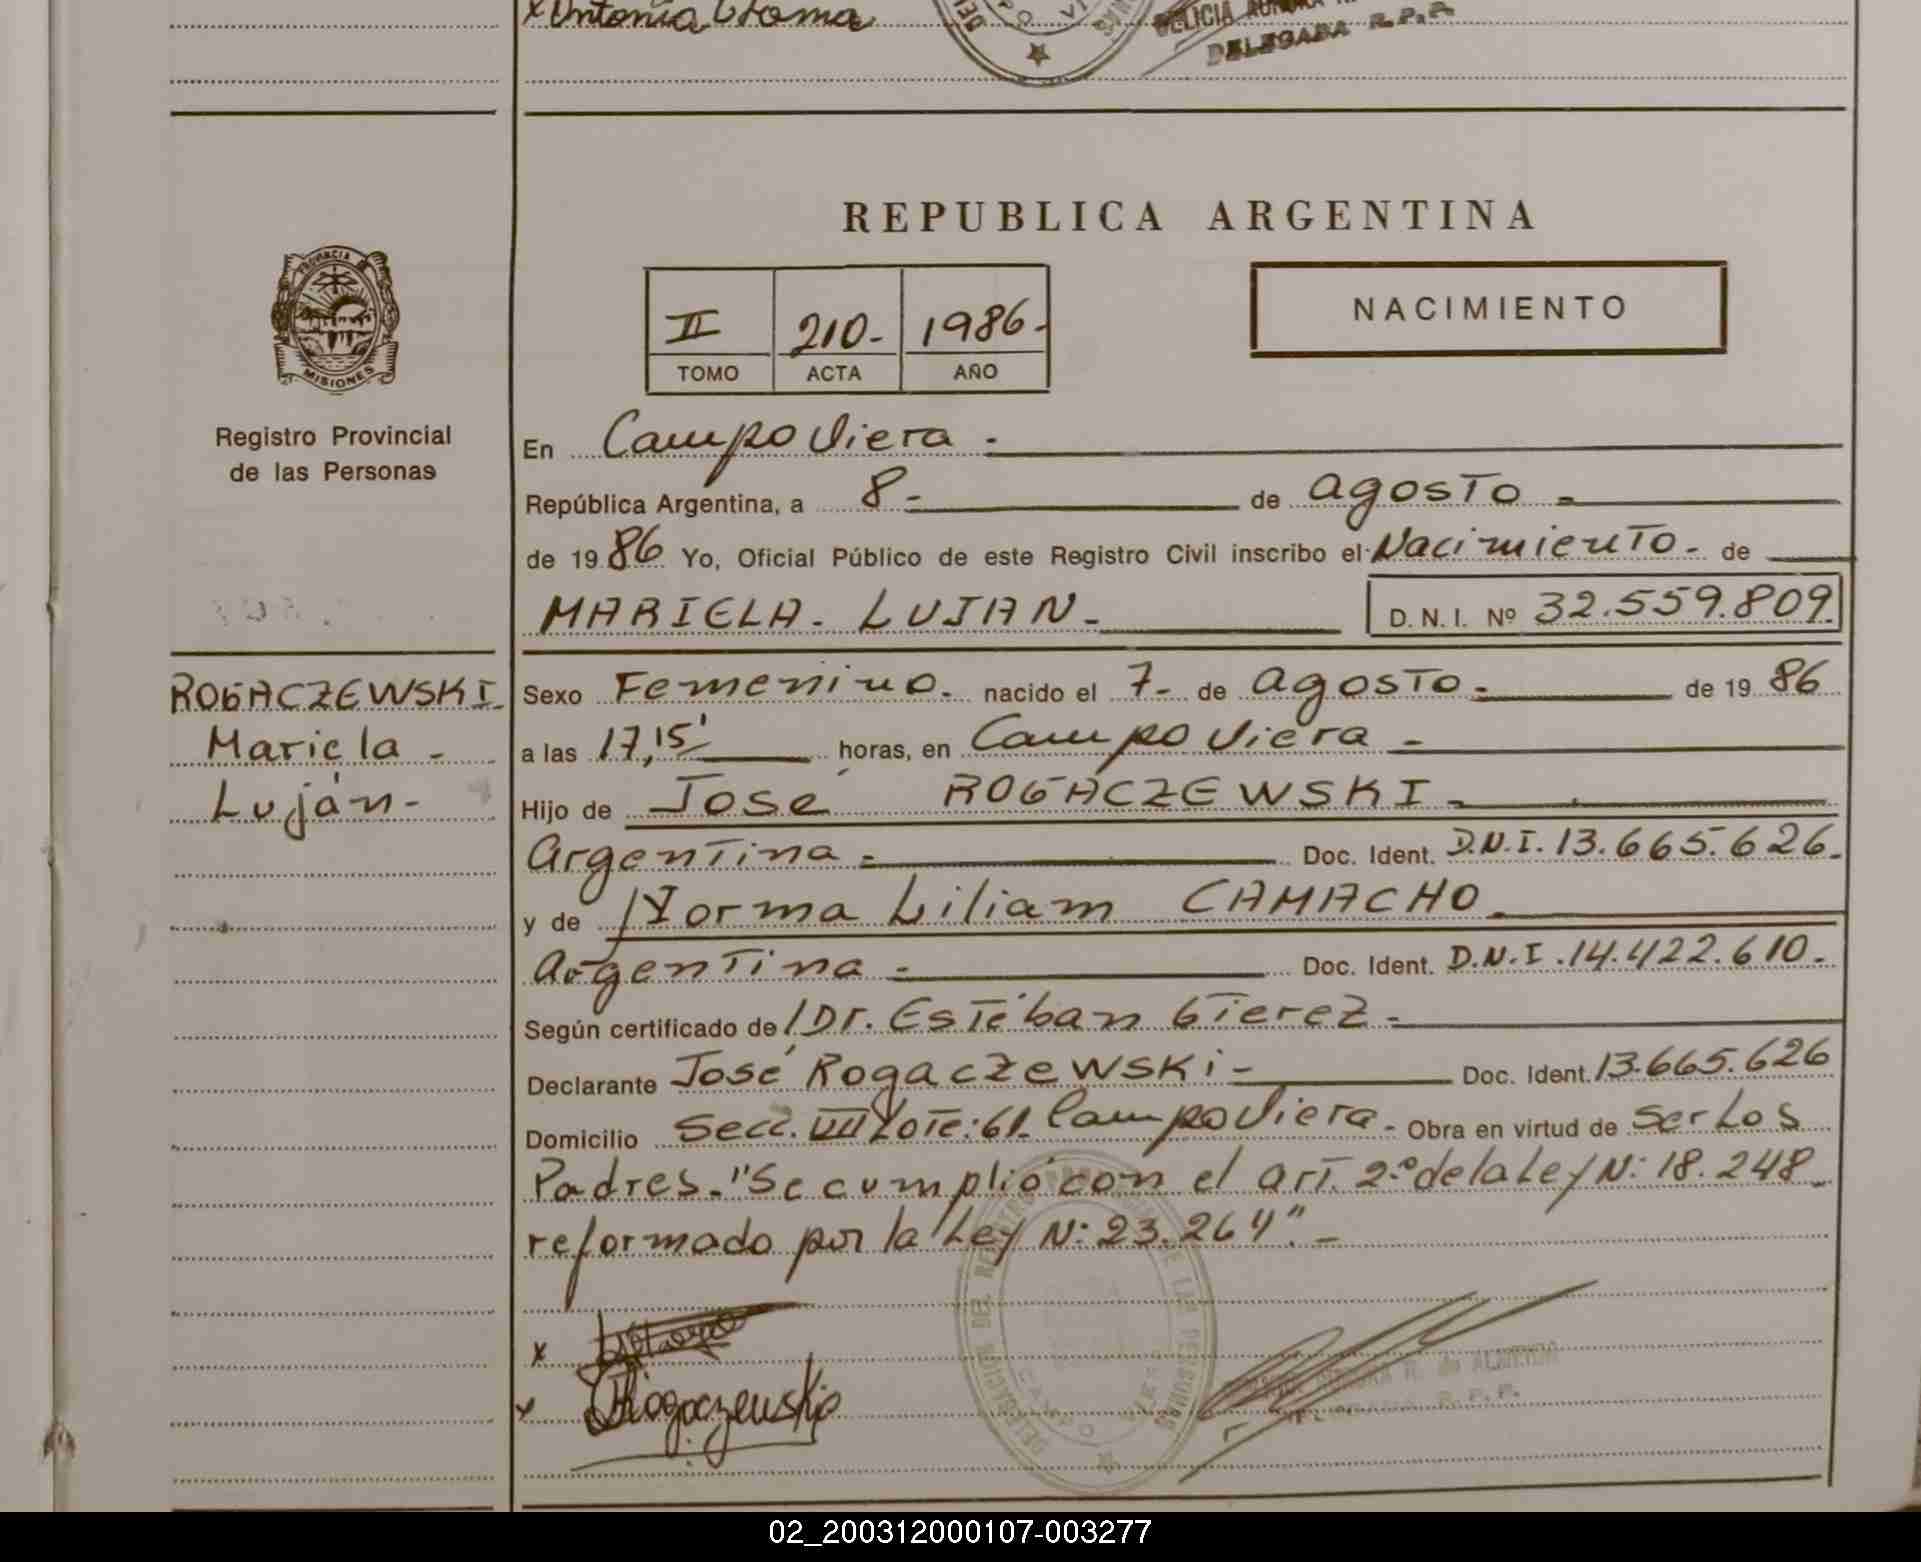 x Antonia
DELICIA AURORA
DELEGADA R.P.P.
REPUBLICA ARGENTINA
PROVINCIA
MISIONES
Registro Provincial
de las Personas
II 210- 1986-
TOMO ACTA AÑO
NACIMIENTO
En Campo Viera -
República Argentina, a 8- de agosto -
de 19 86 Yo, Oficial Público de este Registro Civil inscribo el Nacimiento- de
MARIELA- LUJAN- D. N. I. Nº 32.559.809
ROGACZEWSKI
Mariela -
Luján-
Sexo Femenino- nacido el 7- de agosto - de 19 86
a las 17,15' horas, en Campo Viera -
Hijo de José ROGACZEWSKI -
Argentina - Doc. Ident. D.N.I. 13.665.626-
y de Norma Liliam CAMACHO -
Argentina - Doc. Ident. D.N.I. 14.422.610-
Según certificado de Dr. Estéban Gierez -
Declarante José Rogaczewski - Doc. Ident. 13.665.626
Domicilio Secc. VIII Lote: 61- Campo Viera - Obra en virtud de ser Los
Padres- "Se cumplió con el art. 2º de la Ley N: 18.248
reformado por la Ley N: 23.264"-
x
x Rogaczewski
DELEGACION DEL REGISTRO DE LAS PERSONAS
CAMPO VIERA
AURORA R. de ALMEIDA
DELEGADA R.P.P.
02_200312000107-003277